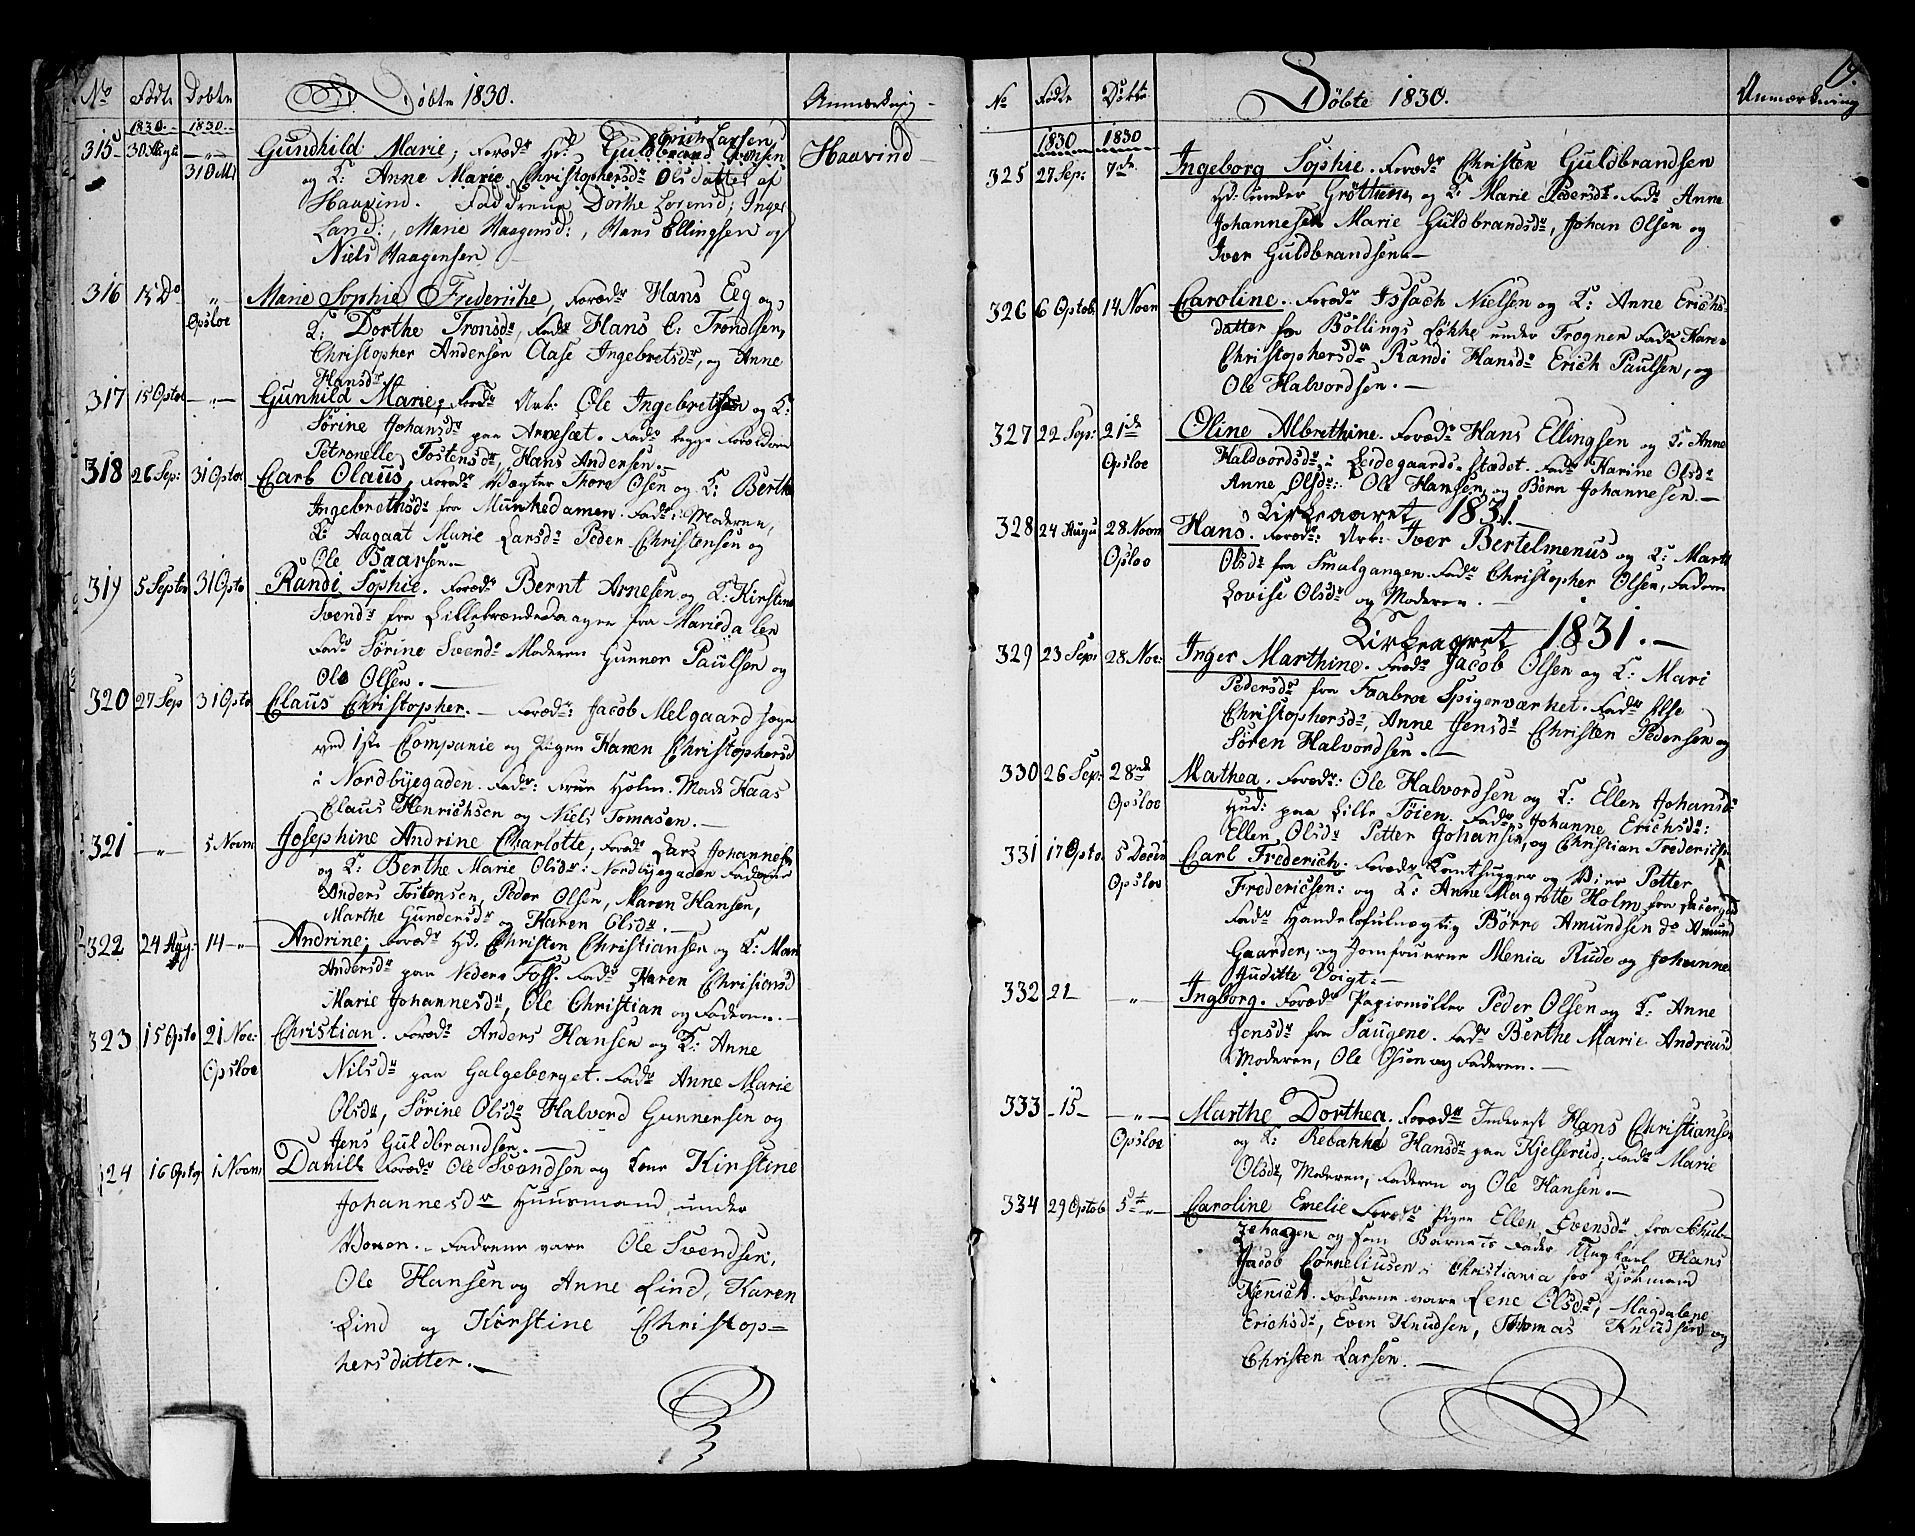 No Fødte Døbte Døbte 1830. Anmærkning
1830. 1830.
315 30 Augu Gundhild Marie, Foræd: Hd: Guldbrand Erich Larsen Haavind
31 O og K: Anne Marie Christophersdr Olsdatter af
Haavind. Faddrene Dorthe Lorensd: Inger
Land:, Marie Haagensd:, Hans Ellingsen og
Niels Haagensen
316 15 Do Marie Sophie Frederiche, Forædr Hans Eeg og
Opsloe K: Dorthe Tronsdr, Fadr Hans C: Trondsen,
Christopher Andersen Aase Ingebretsdr, og Anne
Hansdr
317 15 Optob Gunhild Marie, Forædr Arb: Ole Ingebretsen og K:
Sørine Johansdr paa Arvesæt. Fadr begge Forældrene
Petronelle Tostensdr, Hans Andersen.
318 26 Sep: 31 Optob Carl Olaus, Forædr Vægter Thore Olsen og K: Berthe
Ingebrethsdr fra Munkedamen. Fadr: Moderen,
K: Aagaat Marie Larsdr Peder Christensen og
Ole Baarsen.
319 5 Septbr 31 Opto Randi Sophie. Forædr Bernt Arnesen og K: Kirstine
Svendr fra Lillebrændevaagen fra Mariedalen
Fadr Sørine Svendr Moderen Gunner Paulsen og
Ole Olsen.
320 27 Sep 31 Opto Claus Christopher. Forædr: Jacob Melgaard
ved 1ste Companie og Pigen Karen Christophersd
i Nordbyegaden. Fadr: Frue Holm. Mad Haas
Claus Henrichsen og Niels Tomasen.
321 5 Novm Josephine Andrine Charlotte, Forædr Lars Johannesen
og K: Berthe Marie Olsdr: Nordbyegaden Faddrene
Anders Tostensen, Peder Olsen, Maren Hansen,
Marthe Gundersdr og Karen Olsdr.
322 24 Aug: 14 Andrine, Forædr Hd. Christen Christiansen og K: Mari
Andersdr paa Nedere Foss. Fadr Karen Chrisionsd
Marie Johannesdr, Ole Christian og Faderen.
323 15 Opto 21 Nov: Christian. Forædr Anders Hansen og K: Anne
Opsloe Nilsdr paa Galgeberget. Fadr Anne Marie
Olsdr, Sørine Olsdr Halvord Gunnersen og
Jens Guldbrandsen.
324 16 Opto 1 Novm Danill Forædr Ole Svendsen og Kone Kirstine
Johannesdr Huusmand under
Voxen. Fadrene vare Ole Svendsen,
Ole Hansen og Anne Lind, Karen
Lind og Kørstine Christop=
hersdatter.
19.
No Fødte Døbte Døbte 1830. Anmærkning
1830 1830
325 27 Sep: 7de Ingeborg Sophie. Forædr Christen Guldbrandsen
Hd: under Grøttum og K: Marie Pedersdr. Fadr Anne
Johannesen Marie Guldbrandsdr, Johan Olsen og
Iver Guldbrandsen.
326 6 Optob 14 Novm Caroline. Forædr Issach Nielsen og K: Anne Erichs-
datter fra Bøllings Løkke under Frogner Fadr Karen
Christophersdr Randi Hansdr Erich Paulsen, og
Ole Halvordsen.
327 22 Sep: 21de Oline Albrethine. Forædr Hans Ellingsen og K: Anne
Opsloe Haldvordsdr i Leiegaards-Stædet. Fadr Karine Olsdr
Anne Olsdr: Ole Hansen og Børn Johannesen.
Kirkeaaret 1831.
328 24 Augu 28 Novm Hans. Forædr: Arb: Iver Bertelmenus og K: Marth
Opsloe Olsdr fra Smalgangen. Fadr Christopher Olsen, Faderen
Lovise Olsdr og Moderen.
Kirkeaaret 1831.
329 23 Sep: 28 Nov: Inger Marthine. Forædr Jacob Olsen og K: Mari
Pedersdr fra Faabroe Spigerværket. Fadr Else
Christophersdr, Anne Jensdr Christen Pedersen og
Søren Halvordsen.
330 26 Sep: 28nd Mathea. Forædr: Ole Halvordsen og K: Ellen Johansdr
Opsloe Hud: paa Lille Tøien. Fadr Johanne Erichsdr:
Ellen Olsdr Petter Johansen, og Christian Frederichsen
331 17 Opto 5 Decm Carl Frederich. Forædr Petter
Opsloe Fredericsen: og K: Anne Magrethe Holm fra
Fadr Handelsfuldmægtig Børre Amundsen do Amund
Gaarder, og Jomfruerne Menia Rude og Johanne
Juditte Voigt.
332 21 Ingborg. Forædr Papirmøller Peder Olsen og K: Anne
Jensdr fra Saugene. Fadr Berthe Marie Andreasd
Moderen, Ole Olsen og Faderen.
333 15 Marthe Dorthea. Forædr Inderst Hans Christiansen
Opsloe og K: Rebakke Hansdr paa Kjelserud, Fadr Marie
Olsdr, Moderen, Faderen og Ole Hansen.
334 29 Optob 5te Caroline Emelie Forædr Pigen Ellen Evensdr fra Schul-
zehagen og som Barnets Fader Ung karl Hans
Jacob Corneliusen i Christiania hos Kjøbmand
Fadrene vare Lene Olsdr, Magdalene
Erichsdr, Even Knudsen, Thomas Knudsen og
Christen Larsen.